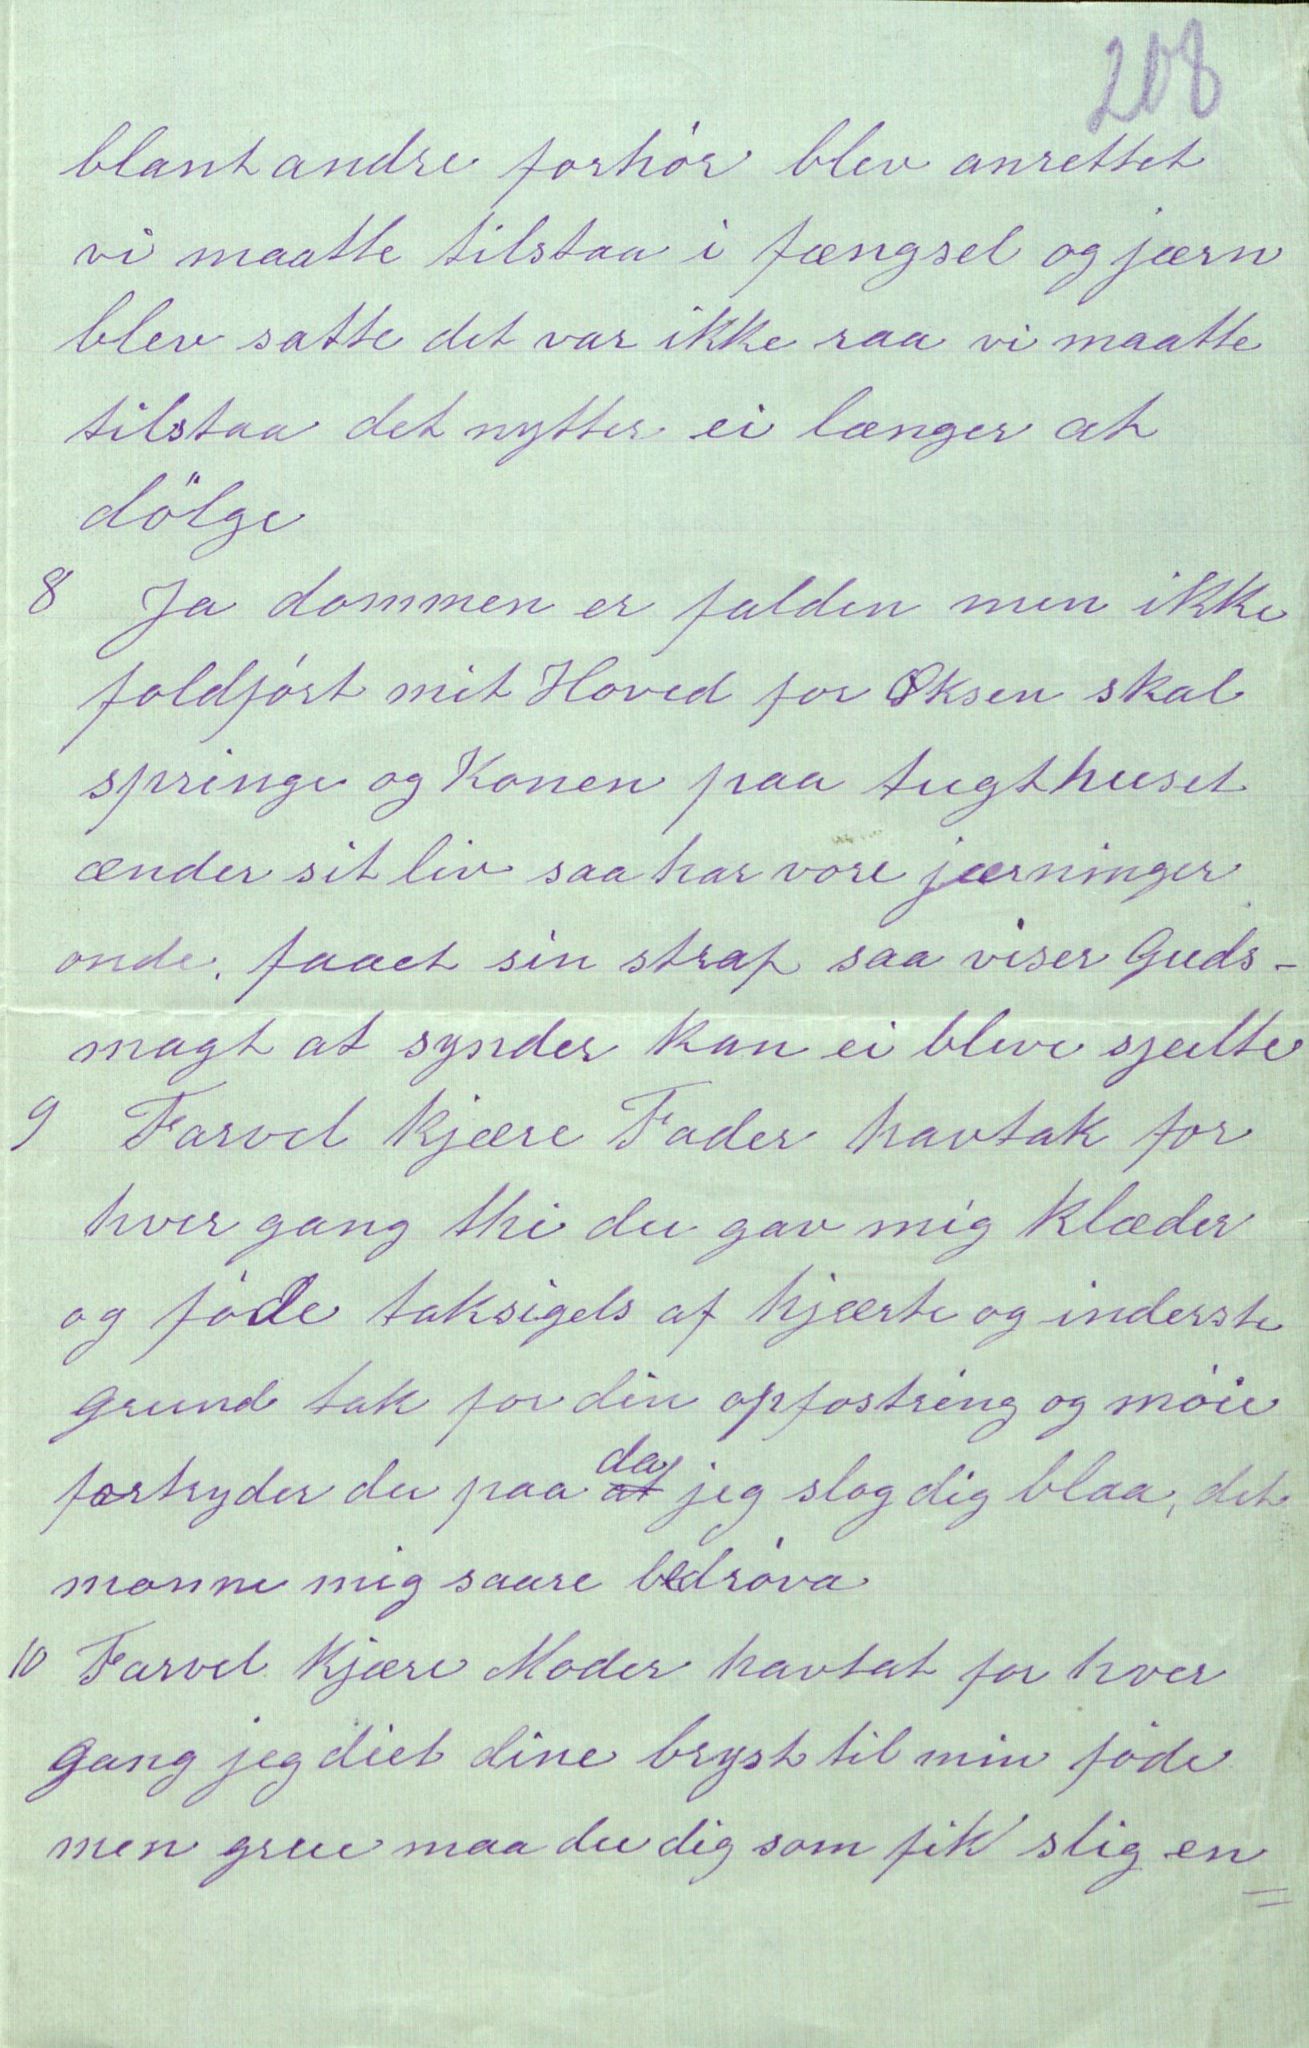 208
blant andre forhör blev anrettet
vi maatte tilstaa i fængsel og jærn
blev satte det var ikke raa vi maatte
tilstaa det nytter ei længer at
dölge
8 Ja dommen er falden men ikke
foldfört mit Hoved for Øksen skal
springe og Konen paa tugthuset
ænder sit liv saa har vore jærninger
onde. faaet sin straf saa viser Guds-
magt at synder kan ei bleve sjulte
9 Farvel kjære Fader havtak for
hver gang thi du gav mig klæder
og föde taksigels af hjærte og inderste
grund tak for din opfostring og möie
fortryder du paa at da jeg slog dig blaa, det
monne mig saare bedröva
10 Farvel kjære Moder havtat for hver
gang jeg diet dine bryst til min föde
men grue maa du dig som fik slig en =